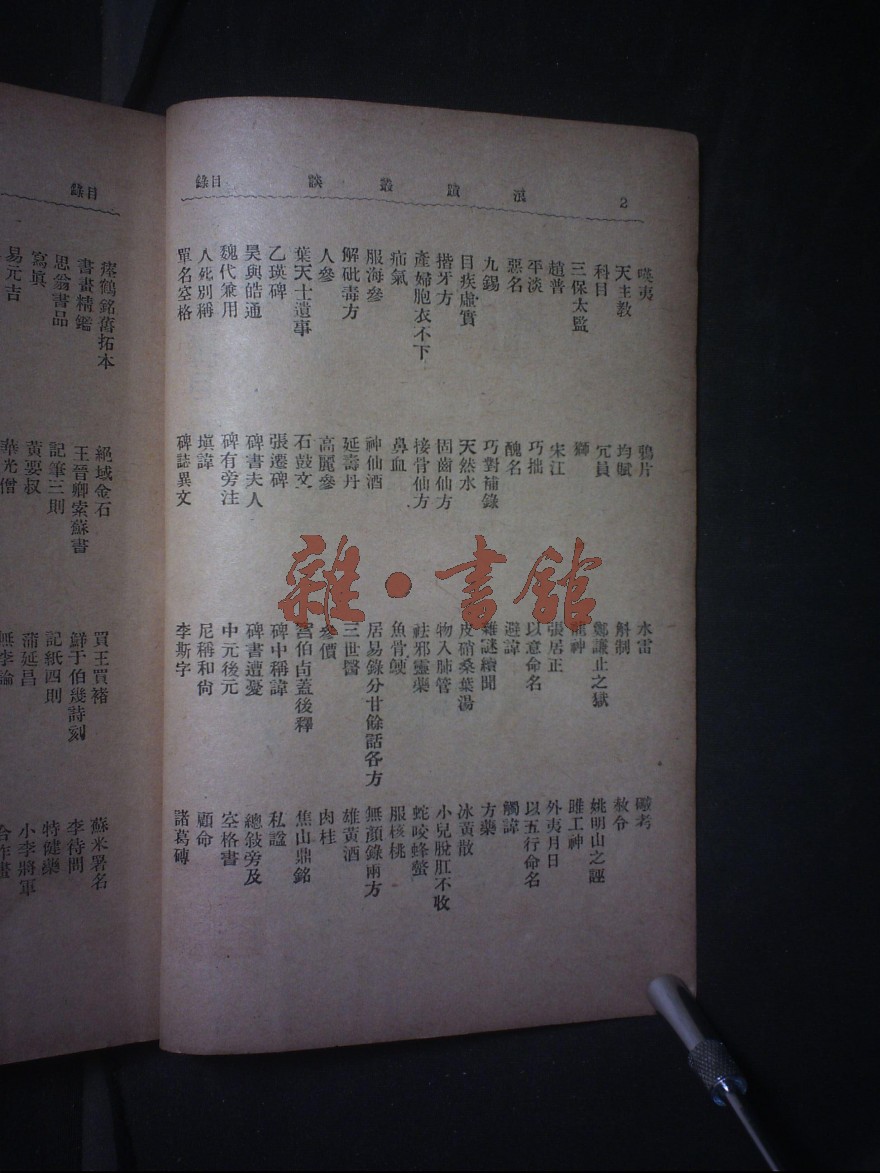 2 浪蹟叢談 目錄
夷 鴉片 水雷 礮考
天主教 均賦 斛制 赦令
科目 冗員 鄭謙止之獄 姚明山之誣
三保太監 獅 龍神 睢工神
趙普 宋江 張居正 外夷月日
平淡 巧拙 以意命名 以五行命名
惡名 醜名 避諱 觸諱
九錫 巧對補錄 雜謎續聞 方藥
目疾虛實 天然水 皮硝桑葉湯 冰黃散
揩牙方 固齒仙方 物入肺管 小兒脫肛不收
產婦胞衣不下 接骨仙方 祛邪靈藥 蛇咬蜂螫
疝氣 鼻血 魚骨鯁 服核桃
服海參 神仙酒 居易錄分甘餘話各方 無顏錄兩方
解砒毒方 延壽丹 三世醫 雄黃酒
人參 高麗參 參價 肉桂
葉天士遺事 石鼓文 宮伯卣蓋後釋 焦山鼎銘
乙瑛碑 張遷碑 碑中稱諱 私諡
昊與皓通 碑書夫人 碑書遭憂 總敍旁及
魏代兼用 碑有旁注 中元後元 空格書
人死別稱 塡諱 尼稱和尙 顧命
單名空格 碑誌異文 李斯字 諸葛磚
雜·書館
目錄
瘞鶴銘舊拓本 絕域金石 買王買褚 蘇米署名
書畫精鑑 王晉卿索蘇書 鮮于伯幾詩刻 李待問
思翁書品 記筆三則 記紙四則 特健藥
寫真 黃要叔 蒲延昌 小李將軍
易元吉 華光僧 無李論 合作畫